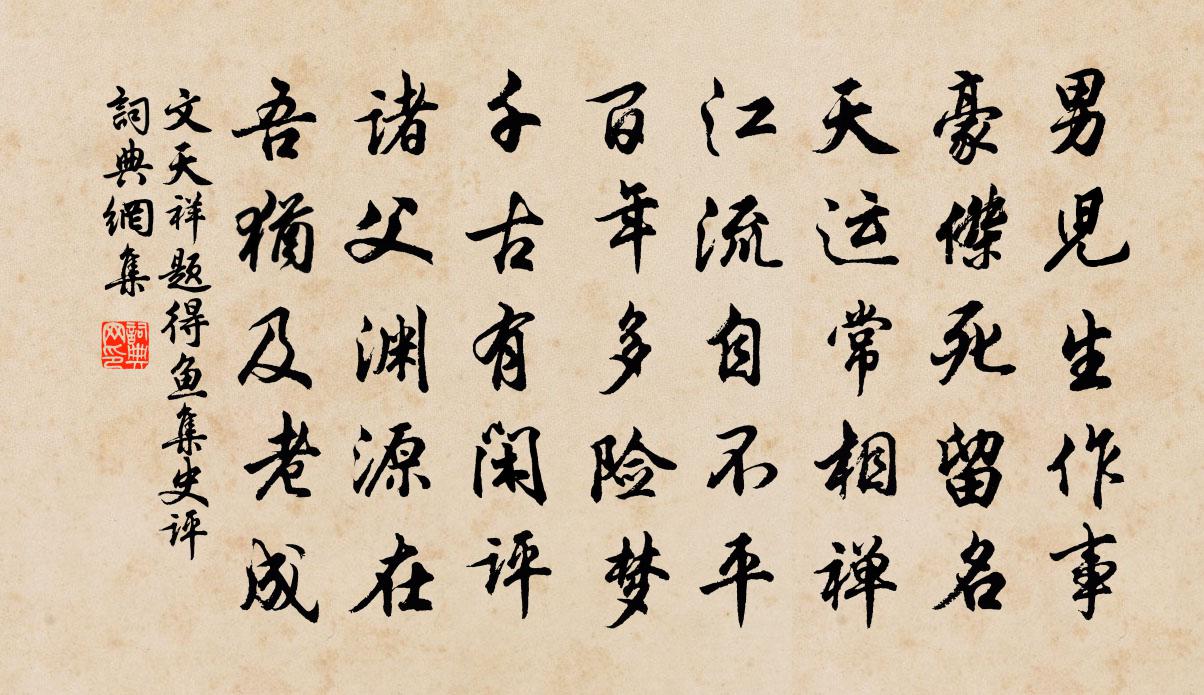 男児生作事
豪傑死留名
天运常相禅
江流自不平
百年多险梦
千古有闲评
诸父渊源在
吾犹及老成
文天祥题得鱼集史评
詞典網集
詞典网印